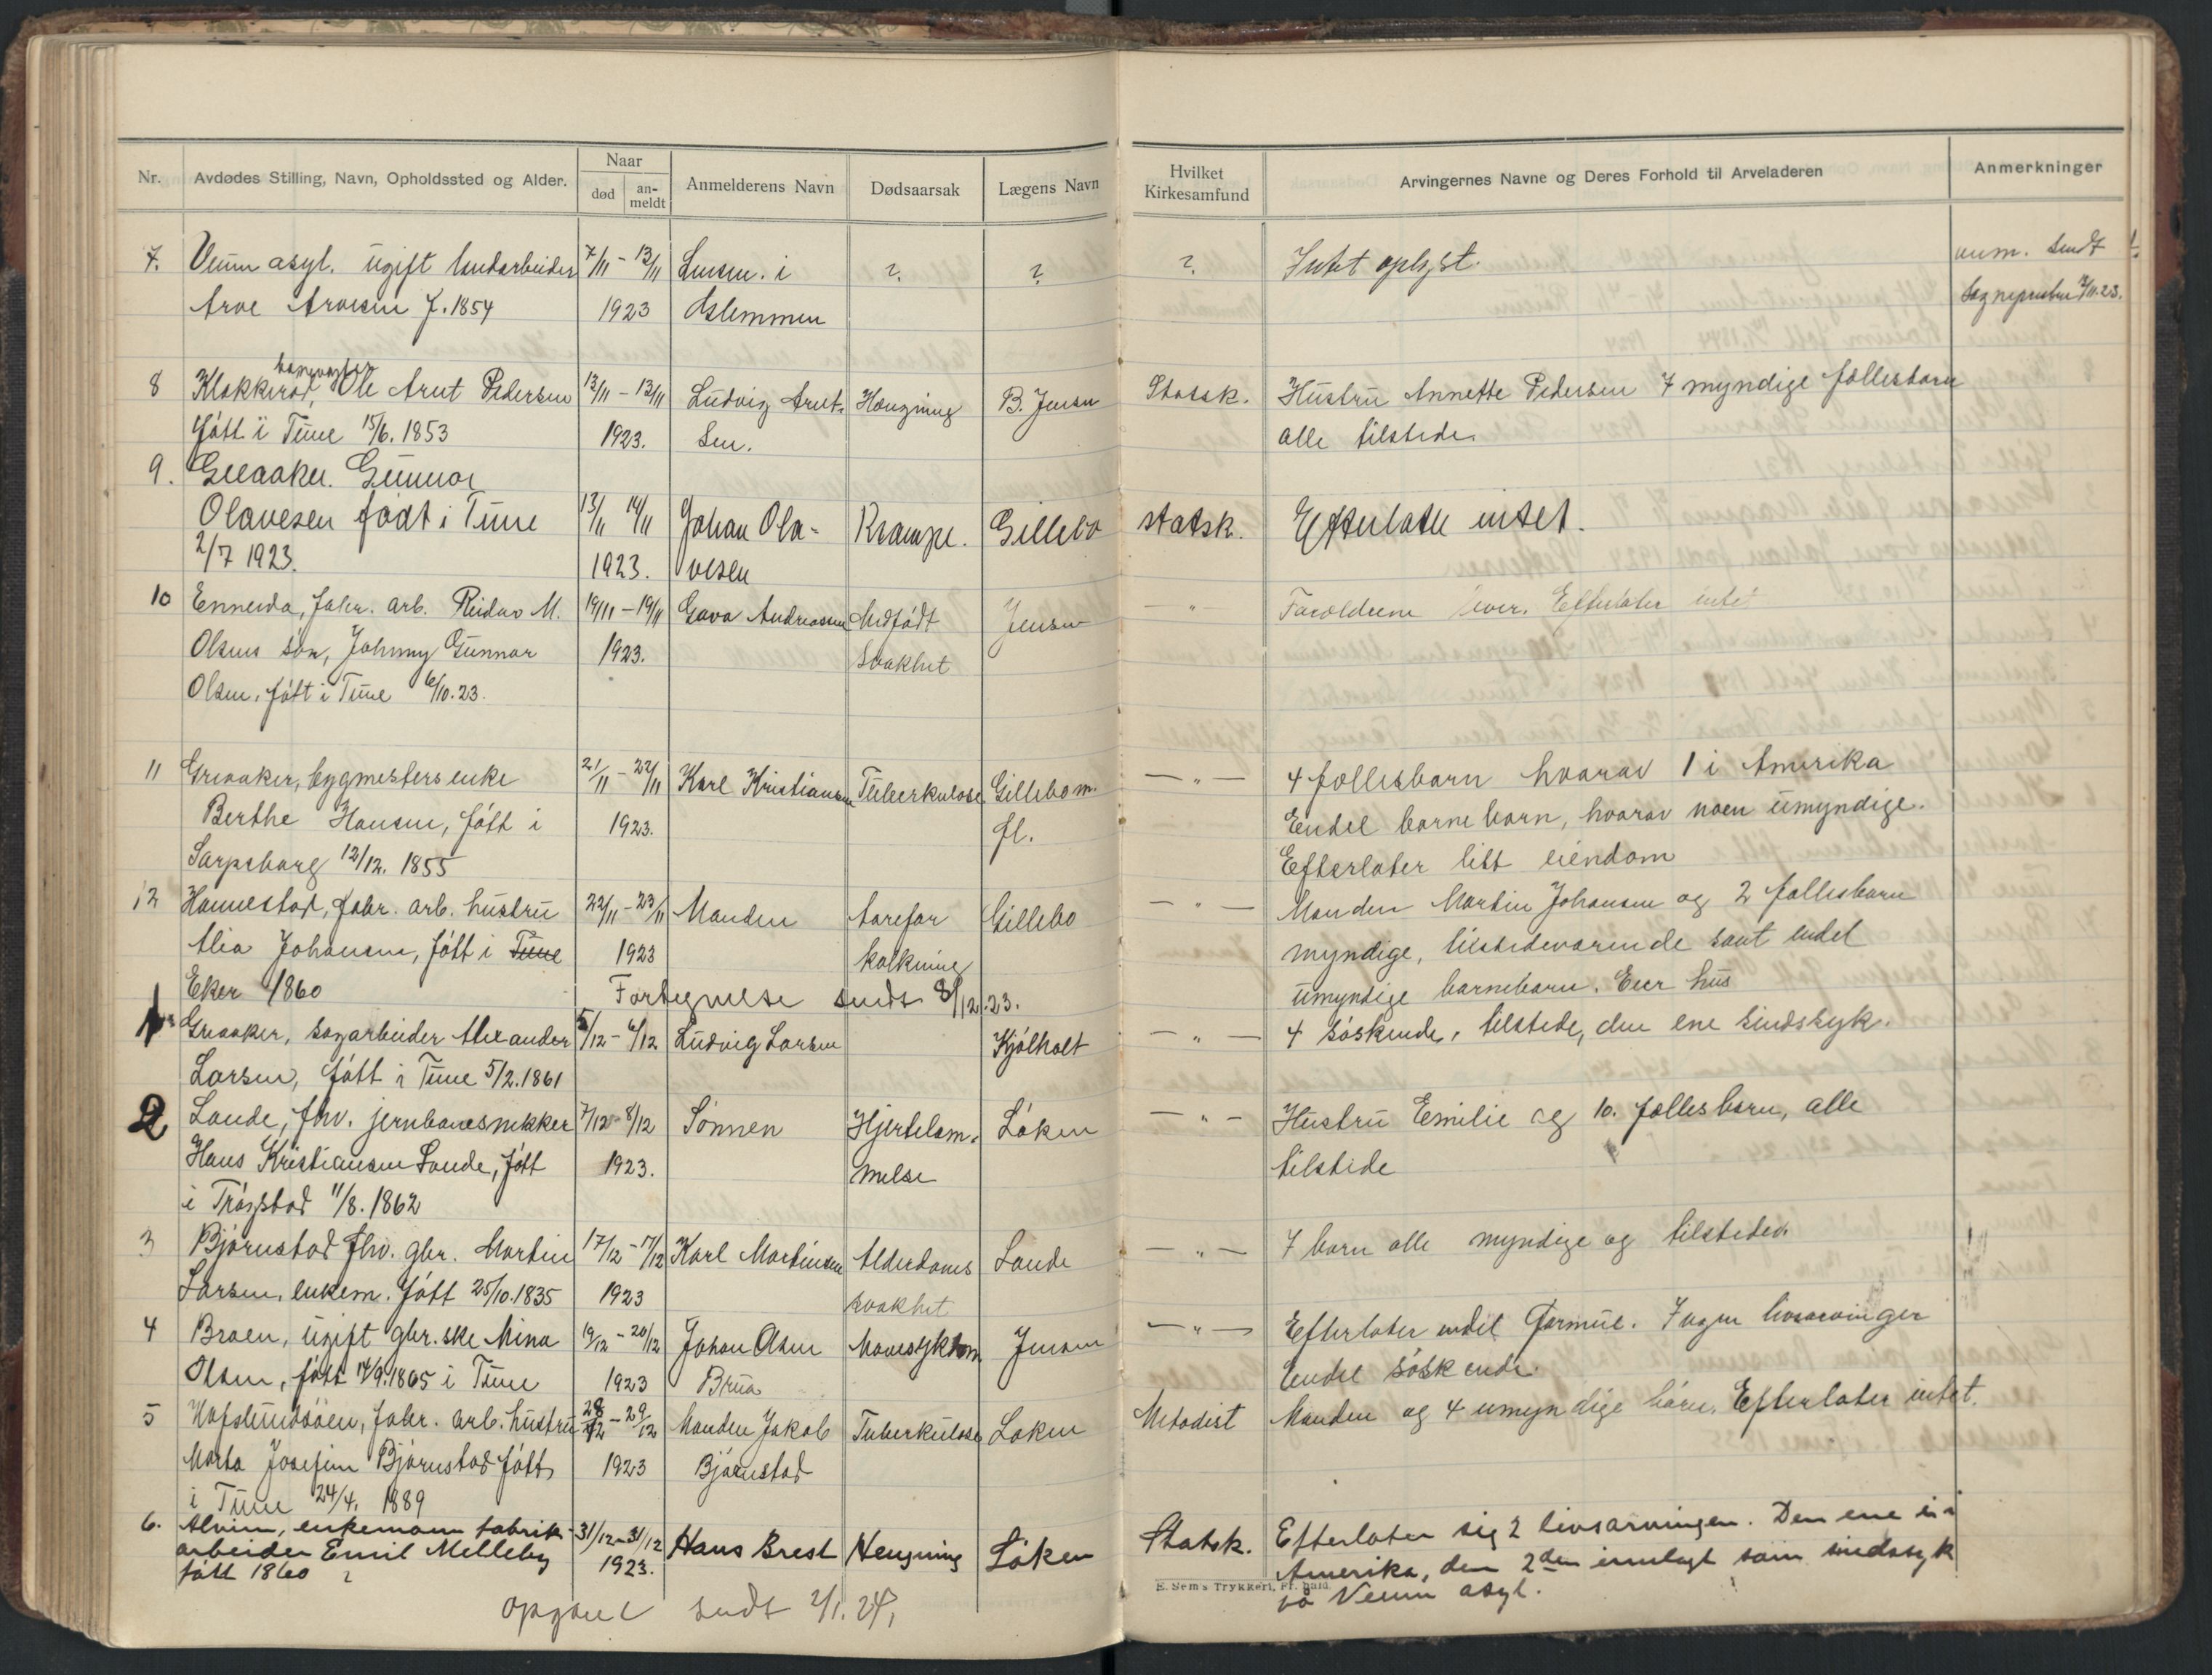 Nr. Avdødes Stilling, Navn, Opholdssted og Alder. Naar død an-meldt Anmelderens Navn Dødsaarsak Lægens Navn Hvilket Kirkesamfund Arvingernes Navne og Deres Forhold til Arveladeren Anmerkninger
7. Veum asyl. ugift landarbeider 7/11 - 13/11 Lensm. i ? ? ? Intet oplyst. anm. sendt
Arve Arvesen f. 1854 1923 Glemmen Sognepresten 13/11.23.
banevogter
8 Klokkerød, Ole Arnt Pedersen 12/11 - 13/11 Ludvig Arnt- Hængning B. Jensen Statsk. Hustru Annette Pedersen 7 myndige fællesbarn
født i Tune 15/6. 1853 1923. sen. alle tilstede.
9. Greaaker. Gunnar
Olavesen født i Tune 13/11 14/11 Johan Ola- Krampe. Gillebo statsk. Efterlate intet.
2/7 1923. 1923. vesen
10 Enneida, fabr. arb. Reidar M. 19/11 - 19/11 Gava Andreassen Medfødt Jensen — " Foraeldrene lever. Efterlater intet
Olsens søn, Johnny Gunnar 1923. svakhet
Olsen, født i Tune 6/10.23.
11 Greaaker, bygmesters enke 21/11 - 22/11 Karl Kristiansen Tuberkulose Gillebo m. — " — 4 fællesbarn hvorav 1 i Amerika
Berthe Hansen, født i 1923. fl. Endel barnebarn, hvorav noen umyndige.
Sarpsborg 12/12. 1855 Efterlater litt eiendom
12 Hannestad, fabr. arb. hustru 22/11 - 23/11 Manden Aarefor Gillebo — " — Manden Martin Johansen og 2 fællesbarn
Alia Johansen, født i Tune 1923 kalkning myndige, tilstedeværende samt endel
Eker 1860 Fortegnelse sendt 8/12.23. umyndige barnebarn. Eier hus
1 Greaaker, sagarbeider Alexander 5/12 - 6/12 Ludvig Larsen Kjølholt — " — 4 søskende, tilstede, den ene sindssyk.
Larsen, født i Tune 5/2.1861
2 Lande, fhv. jernbanesnekker 7/12 - 8/12 Sønnen Hjertelam- Løken — " — Hustru Emilie og 10. fællesbarn, alle
Hans Kristiansen Lande, født 1923. melse tilstede
i Trøgstad 11/8. 1862
3 Bjørnstad fhv. gbr. Martin 17/12 - 17/12 Karl Martinsen Alderdoms Lande — " — 7 barn alle myndige og tilstede.
Larsen, enkem. født 25/10.1835 1923 svakhet
4 Braen, ugift gbr. ske Mina 19/12 - 20/12 Johan Olsen Mavesykdom Jensen — " — Efterlater endel formue. Ingen livsarvinger
Olsen, født 14/9.1865 i Tune 1923 Brua Endel søskende.
5 Hafslundsøen, fabr. arb. hustru 28/12 - 29/12 Manden Jakob Tuberkulose Løken Metodist Manden og 4 umyndige børn. Efterlater intet.
Marta Josefine Bjørnstad født 1923 Bjørnstad
i Tune 24/4. 1889
6. Alvim, enkemann fabrik- 31/12 - 31/12 Hans Brest Hengning Løken Statsk. Efterlater sig 2 livsarvingen. Den ene i
arbeider Emil Melleby 1923. Amerika, den 2den innlagt som sindssyk
født 1860 ? E. Sem's Trykkeri, Fr.hald. på Veum asyl.
opgave sendt 2/1.24,